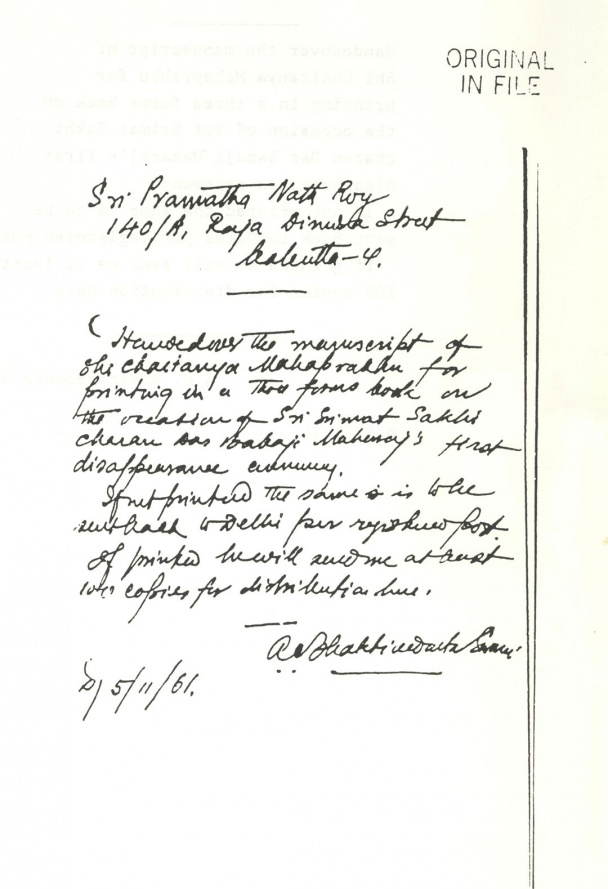 ORIGINAL
IN FILE
Sri Pramatha Nath Roy
140/A, Raja Dinendra Street
Calcutta-4.
( Handedover the manuscript of
Shri Chaitanya Mahaprabhu for
printing in a three forms book on
the occasion of Sri Srimat Sakhi
charan Das Babaji Maharaj's first
disappearance
If not printed the same is to be
sent back to Delhi per registered post.
If printed he will send me at least
100 copies for distribution here.
A.C. Bhaktivedanta Swami
D/ 5/11/61.